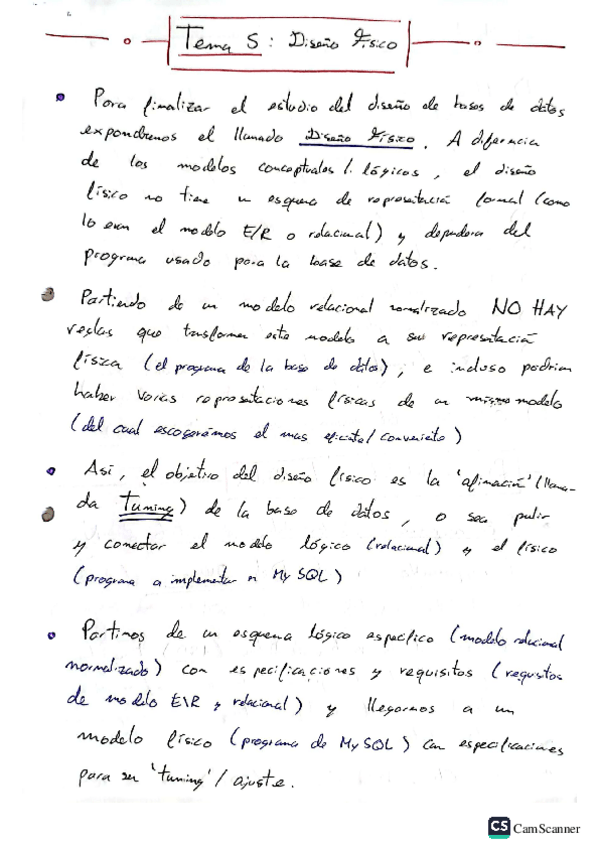 Tema 5: Diseño Físico
Para finalizar el estudio del diseño de bases de datos
expondremos el llamado Diseño Físico. A diferencia
de los modelos conceptuales/lógicos, el diseño
físico no tiene un esquema de representación formal (como
lo eran el modelo E/R o relacional) y dependera del
programa usado para la base de datos.
Partiendo de un modelo relacional normalizado NO HAY
reglas que transformen este modelo a su representación
física (el programa de la base de datos), e incluso podrian
haber varias representaciones físicas de un mismo modelo
(del cual escogeremos el mas eficiente/conveniente)
Asi, el objetivo del diseño físico es la 'afinación' (llama-
da Tuning) de la base de datos, o sea pulir
y conectar el modelo lógico (relacional) y el físico
(programa a implementar en MySQL)
Partimos de un esquema lógico específico (modelo relacional
normalizado) con especificaciones y requisitos (requisitos
de modelo E\R y relacional) y llegamos a un
modelo físico (programa de MySQL) con especificaciones
para ser 'tuning'/ajuste.
CS CamScanner